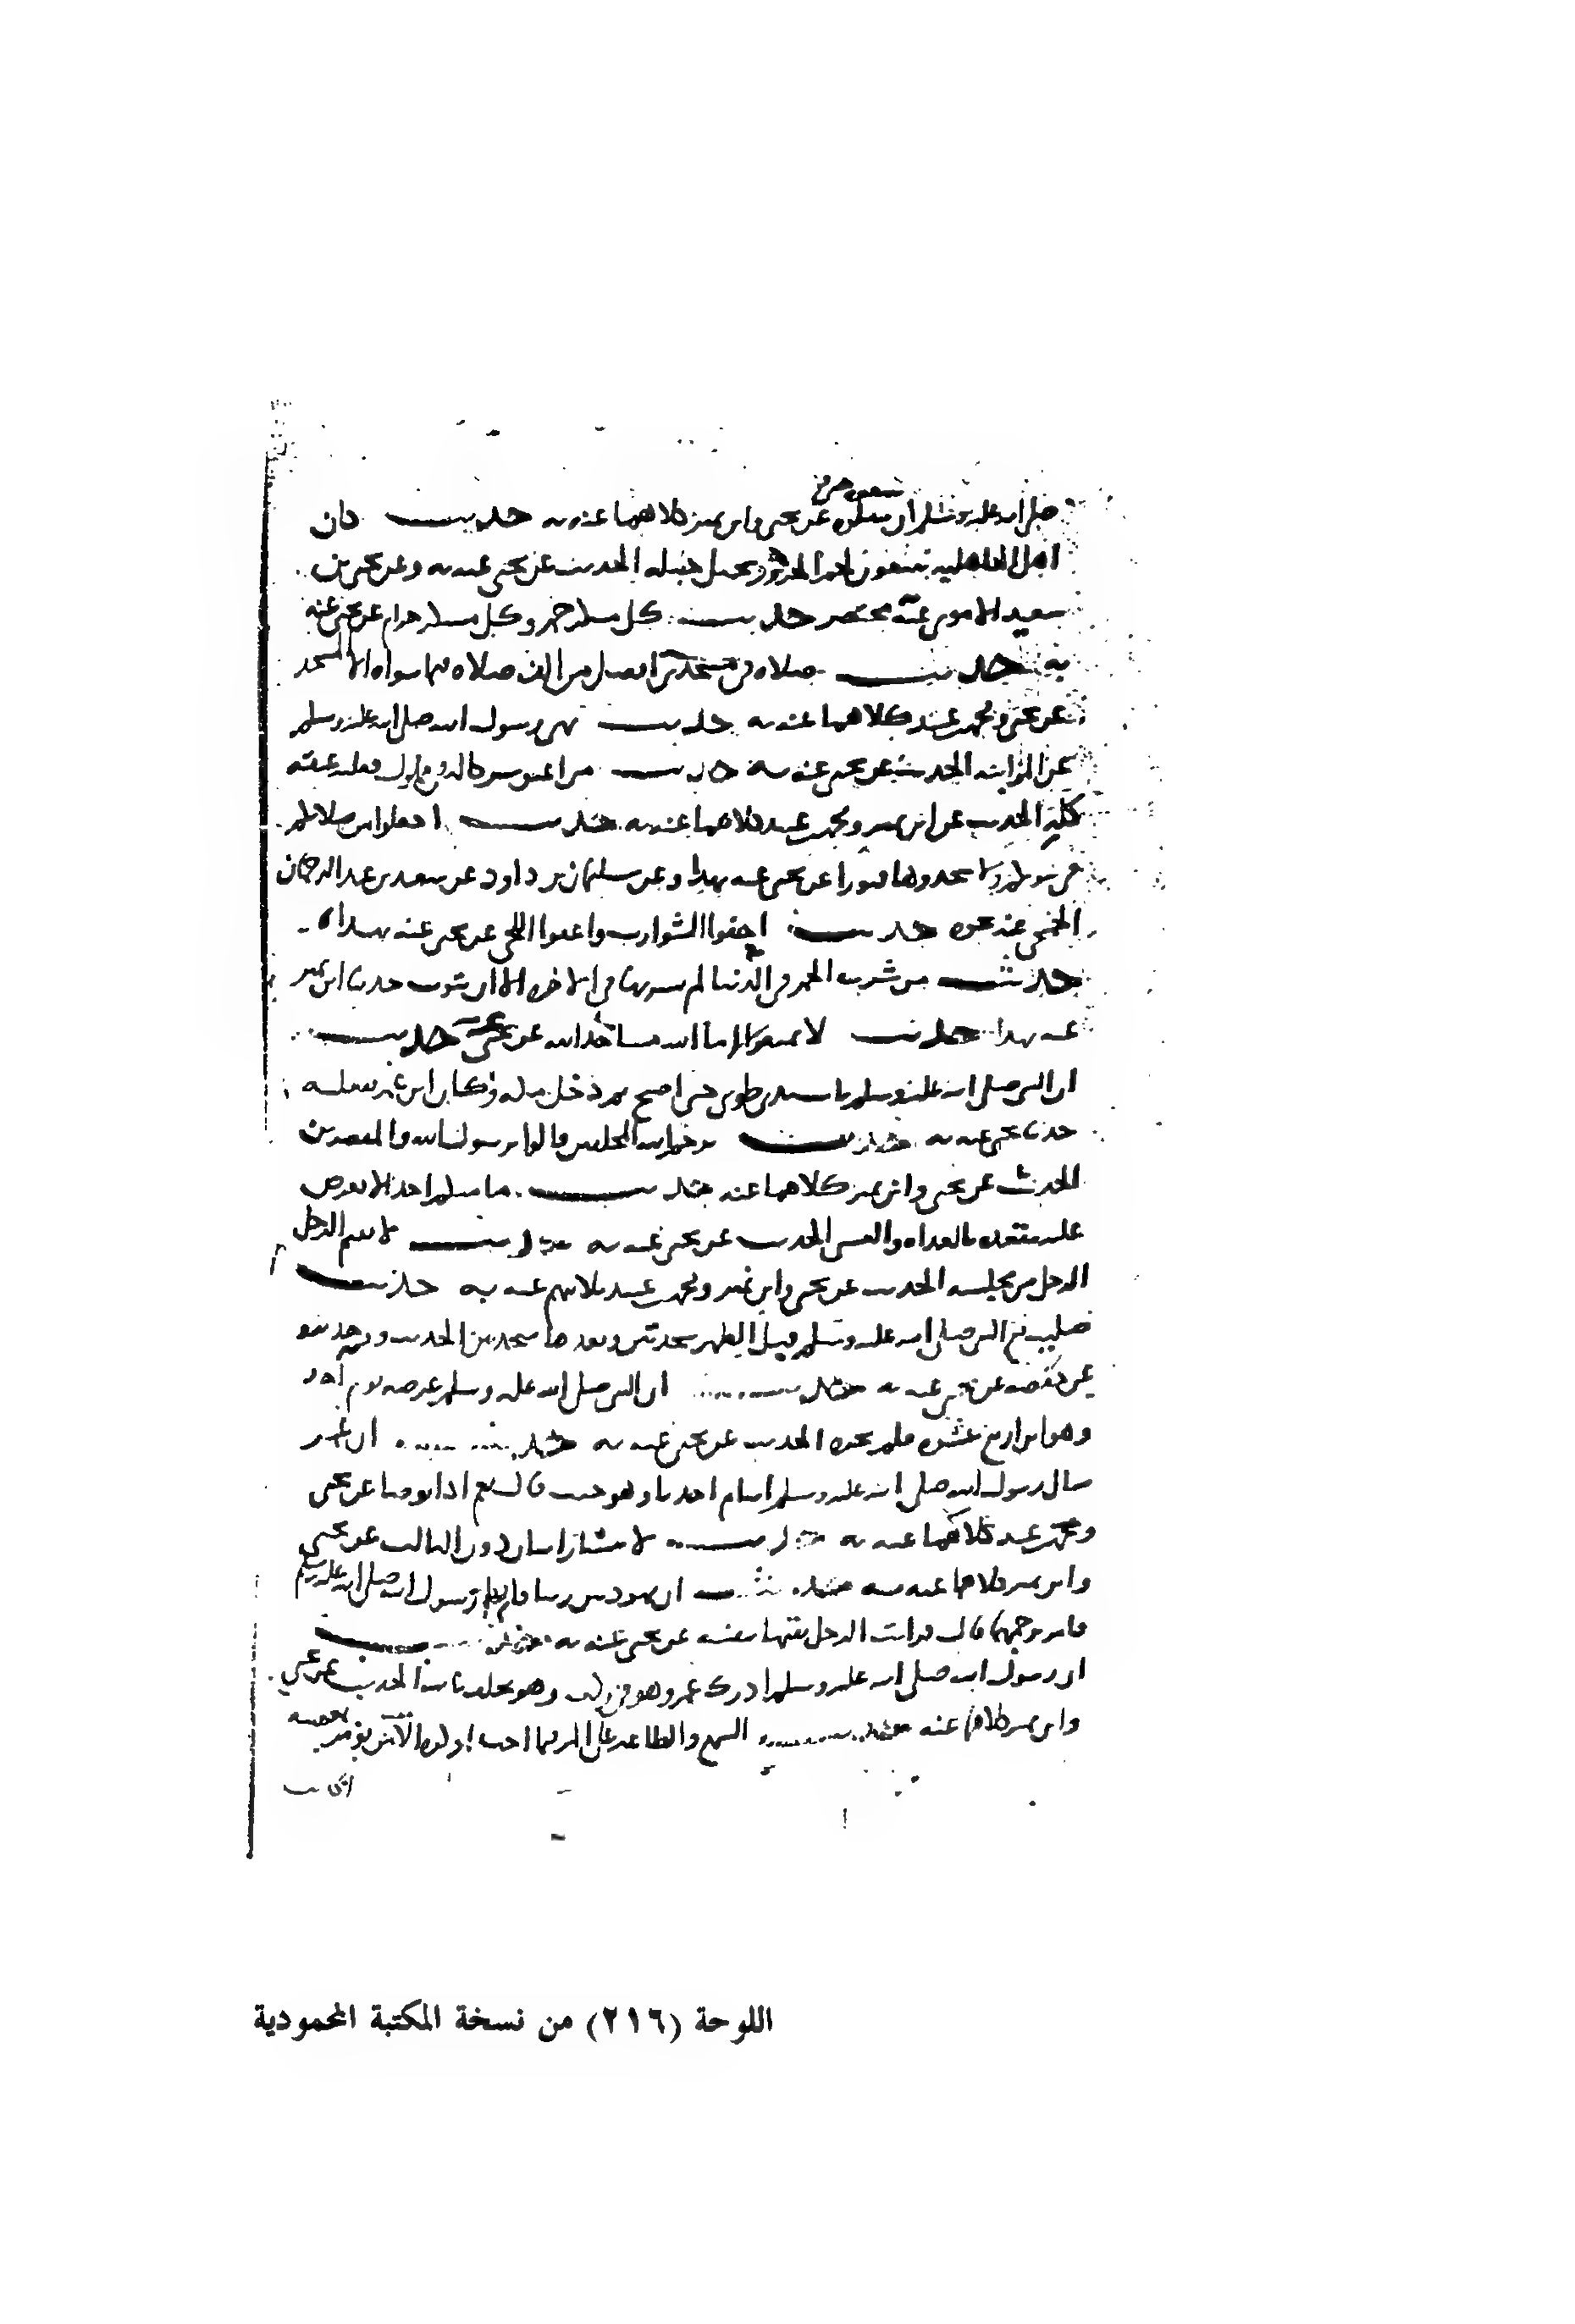 صلى الله عليه وسلم ان عن يحيى وابن نمير كلاهما عنه به حديث كان
اهل الجاهلية يتبعون لحم الجزور بحبل حبله الحديث عن يحيى عنه به وعن يحيى بن
سعيد الاموى عنه مختصر حديث كل مسكر خمر وكل مسكر حرام عن يحيى عنه
به حديث صلاه فى مسجدى افضل من الف صلاه فيما سواه الا المسجد
عن يحيى ومحمد بن عبيد كلاهما عنه به حديث نهى رسول الله صلى الله عليه وسلم
عن المزابنه الحديث عن يحيى عنه به حديث من اعتق شركا له فى مملوك فعليه عتقه
كله الحديث عن ابن نمير ومحمد بن عبيد كلاهما عنه به حديث اجعلوا من صلاتكم
فى بيوتكم ولا تتخذوها قبورا عن يحيى عنه بهذا وعن سليمان بن داود عن سعيد بن عبد الرحمان
الجمحى عنه نحوه حديث احفوا الشوارب واعفوا اللحى عن يحيى عنه بهذا
حديث من شرب الخمر فى الدنيا لم يشربها فى الاخره الا ان يتوب حدثنا ابن نمير
عنه بهذا حديث لا تمنعوا اما الله مساجد الله عن يحيى عنه حديث
ان النبى صلى الله عليه وسلم بات بذى طوى حتى اصبح ثم دخل مكه وكان ابن عمر يفعله
حدثنا يحيى عنه به حديث يرحم الله المحلقين قالوا يرسول الله والمقصرين
الحديث عن يحيى وابن نمير كلاهما عنه حديث ما منكم احد الا يعرض
عليه مقعده بالغداه والعشى الحديث عن يحيى عنه به حديث لا يقيم الرجل
الرجل من مجلسه الحديث عن يحيى وابن نمير ومحمد بن عبيد ثلاثتهم عنه به حديث
صليت مع النبى صلى الله عليه وسلم قبل الظهر سجدتين وبعدها سجدتين الحديث
عن حفصه عن يحيى عنه به حديث ان النبى صلى الله عليه وسلم عرضه يوم احد
وهو ابن اربع عشره فلم يجزه الحديث عن يحيى عنه به حديث ان عمر
سال رسول الله صلى الله عليه وسلم اينام احدنا وهو جنب قال نعم اذا توضا عن يحيى
ومحمد بن عبيد كلاهما عنه به حديث لا يتسار اثنان دون الثالث عن يحيى
وابن نمير كلاهما عنه به حديث ان يهوديين زنيا فاتى بهما رسول الله صلى الله عليه وسلم
فامر برجمهما قال فرايت الرجل يقيها بنفسه عن يحيى عنه به حديث
ان رسول الله صلى الله عليه وسلم ادرك عمر وهو فى ركب وهو يحلف بابيه الحديث عن يحيى
وابن نمير كلاهما عنه حديث السمع والطاعه على المر فيما احب او كره الا ان يؤمر بمعصيه
اللوحة (٢١٦) من نسخة المكتبة المحمودية